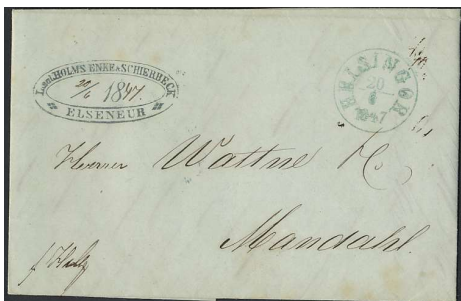 HOLMS ENKE & SCHIERBECK
20/6 1847.
ELSENEUR
HELSINGØR
20
6
1847
Herrer Wattne
Mandahl.